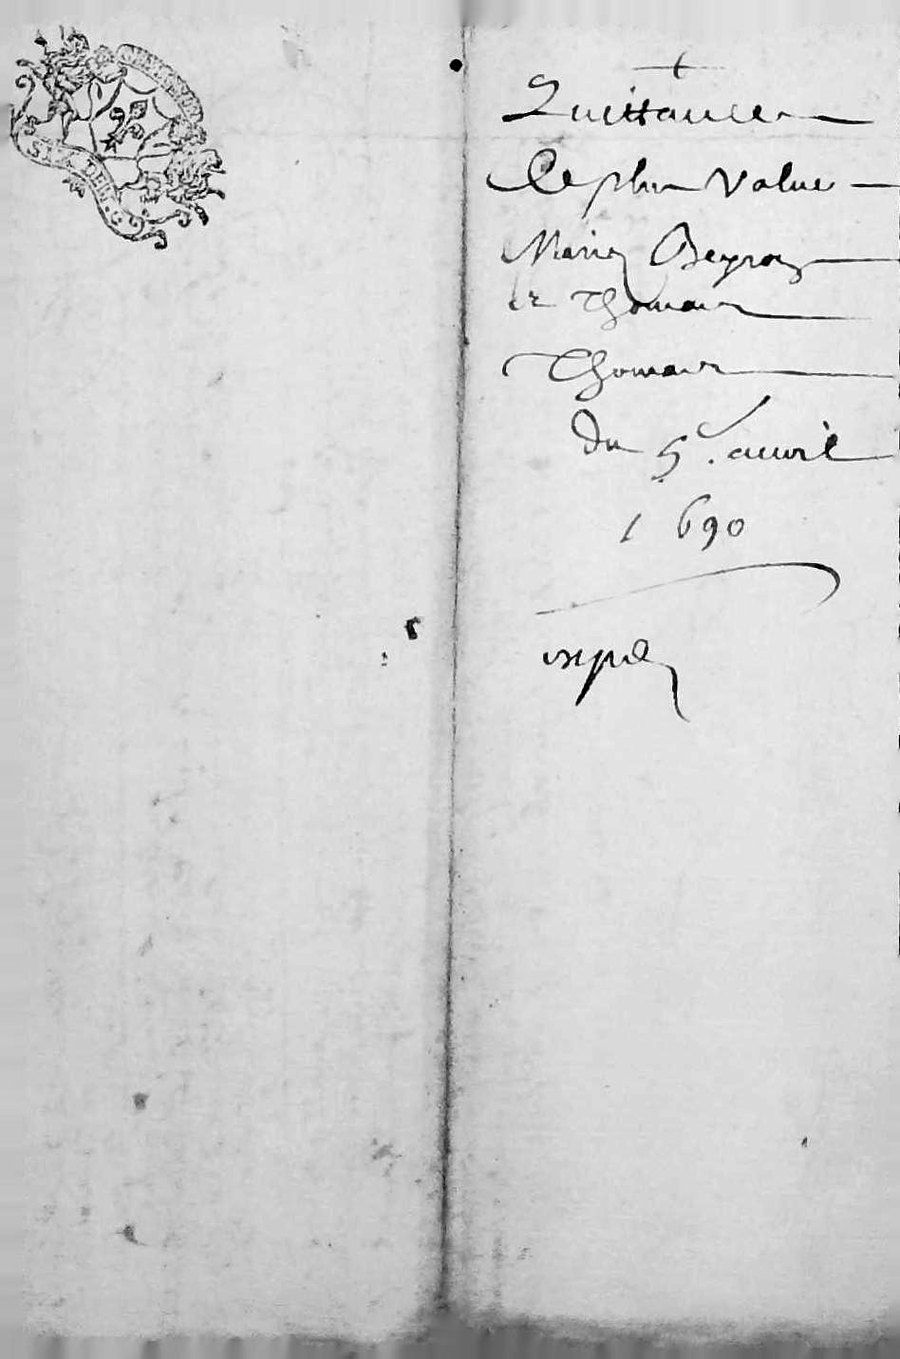 Quittance
De plus value
Marie Beyrou
et Thomas
Thomas
du 5e. auvril
1690
expé